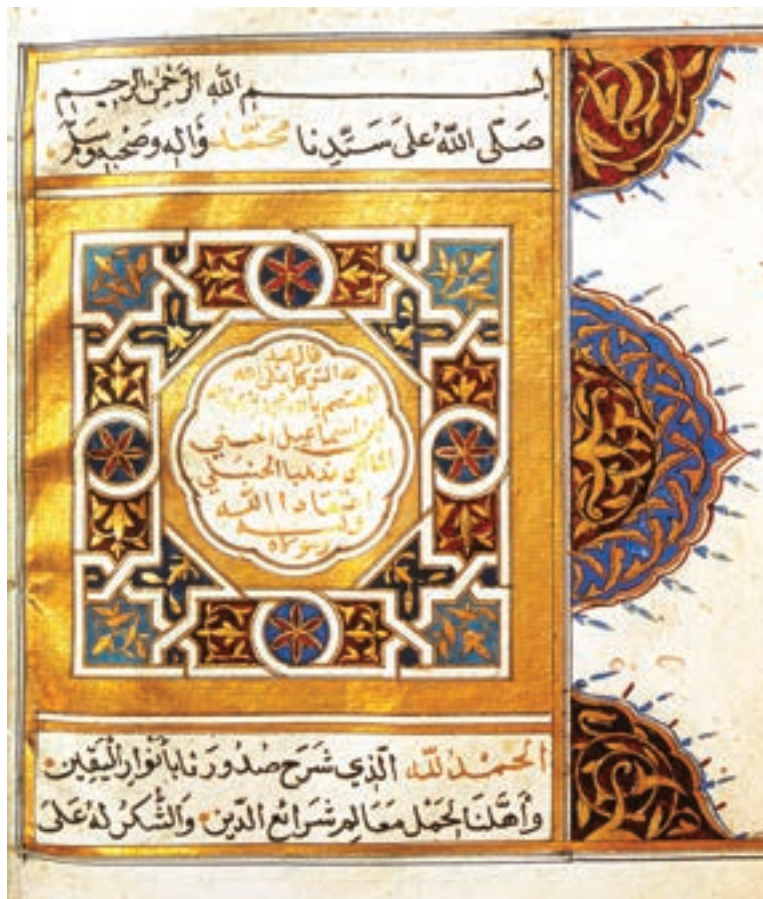 بسم الله الرحمن الرحيم
صَلّى اللهُ عَلىَ سَيِّدِنا مُحَمَّد وَالِه وَصَحْبِه وَسَلّم
قال عبد
الله المتوكل على الله
المعتصم بالله
بن اسماعيل الحسني
المالكي مذهبا الحنبلي
اعتقادا الله
وليه
ومولاه
الحَمْدُ لله الَّذِي شَرَحَ صُدُورَنا بأنْوارِ الْيَقِين
وَأهَّلَنَا لِحَمْلِ مَعَالِم شَرائع الدّين وَالشُّكرُ لهُ عَلىَ